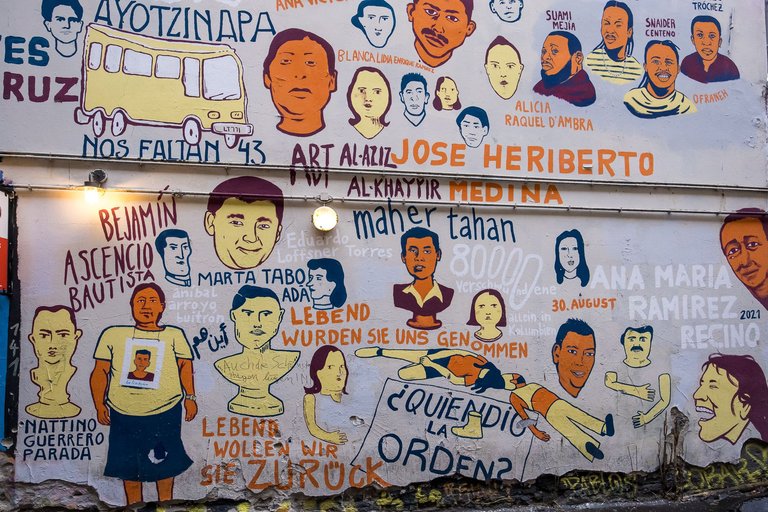 AYOTZINAPA
ANA VICTO
TRÓCHEZ
SUAMI
MEJIA
SNAIDER
CENTENO
TES
RUZ
BLANCA LIDIA
ENRIQUE
OFRANEH
ALICIA
RAQUEL D'AMBRA
NOS FALTAN 43
ART AL-AZIZ
AL-KHAYYIR
JOSE HERIBERTO
MEDINA
BEJAMÍN
ASCENCIO
BAUTISTA
maher tahan
Eduardo
Loffsner Torres
MARTA TABO
ADA
80000
Verschwundene
allein in
Kolumbien
30. AUGUST
ANA MARIA
RAMIREZ
RECINO
2021
anibal
arroyo
buitron
أين هم
LEBEND
WURDEN SIE UNS GENOMMEN
NATTINO
GUERRERO
PARADA
LEBEND
WOLLEN WIR
SIE ZURÜCK
¿QUIEN DIO
LA
ORDEN?